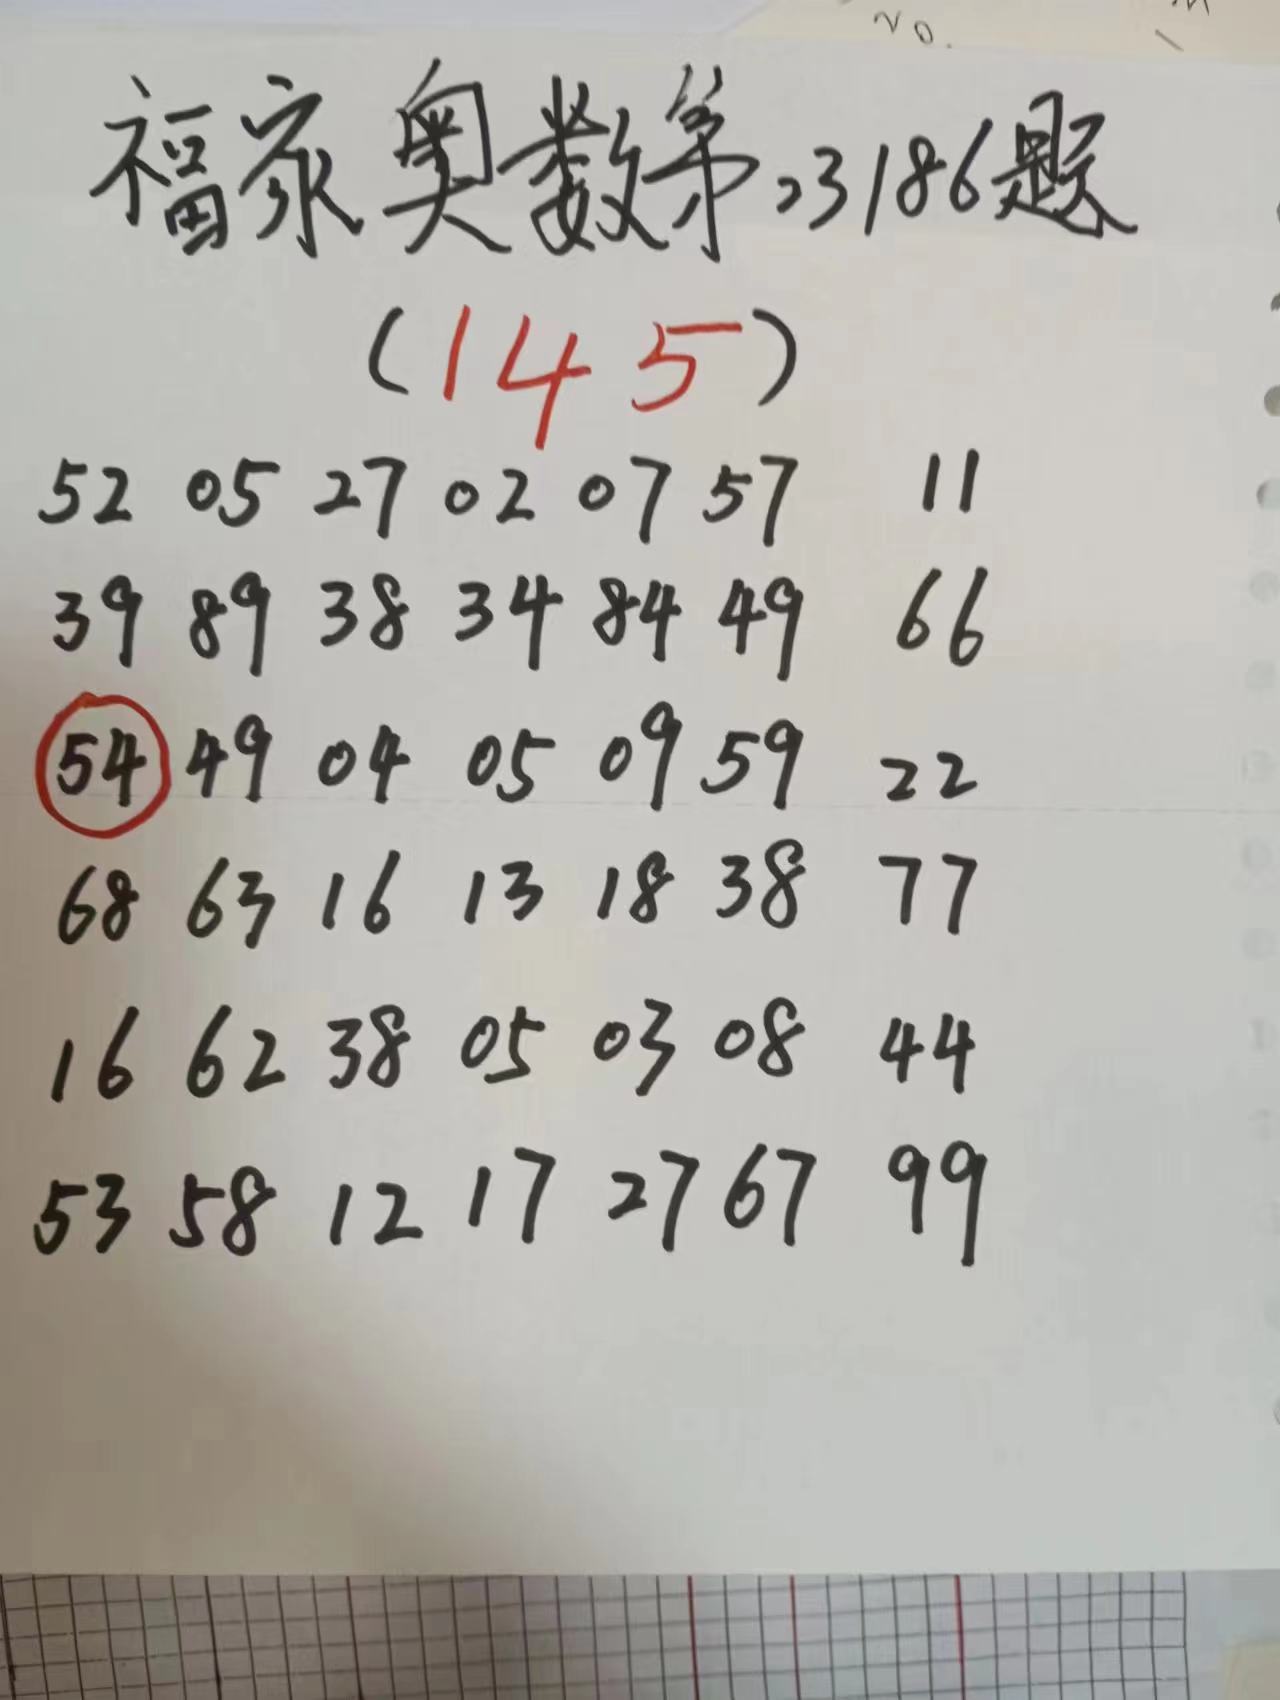 No.
福家奥数第23186题
(145)
52 05 27 02 07 57 11
39 89 38 34 84 49 66
54 49 04 05 09 59 22
68 63 16 13 18 38 77
16 62 38 05 03 08 44
53 58 12 17 27 67 99